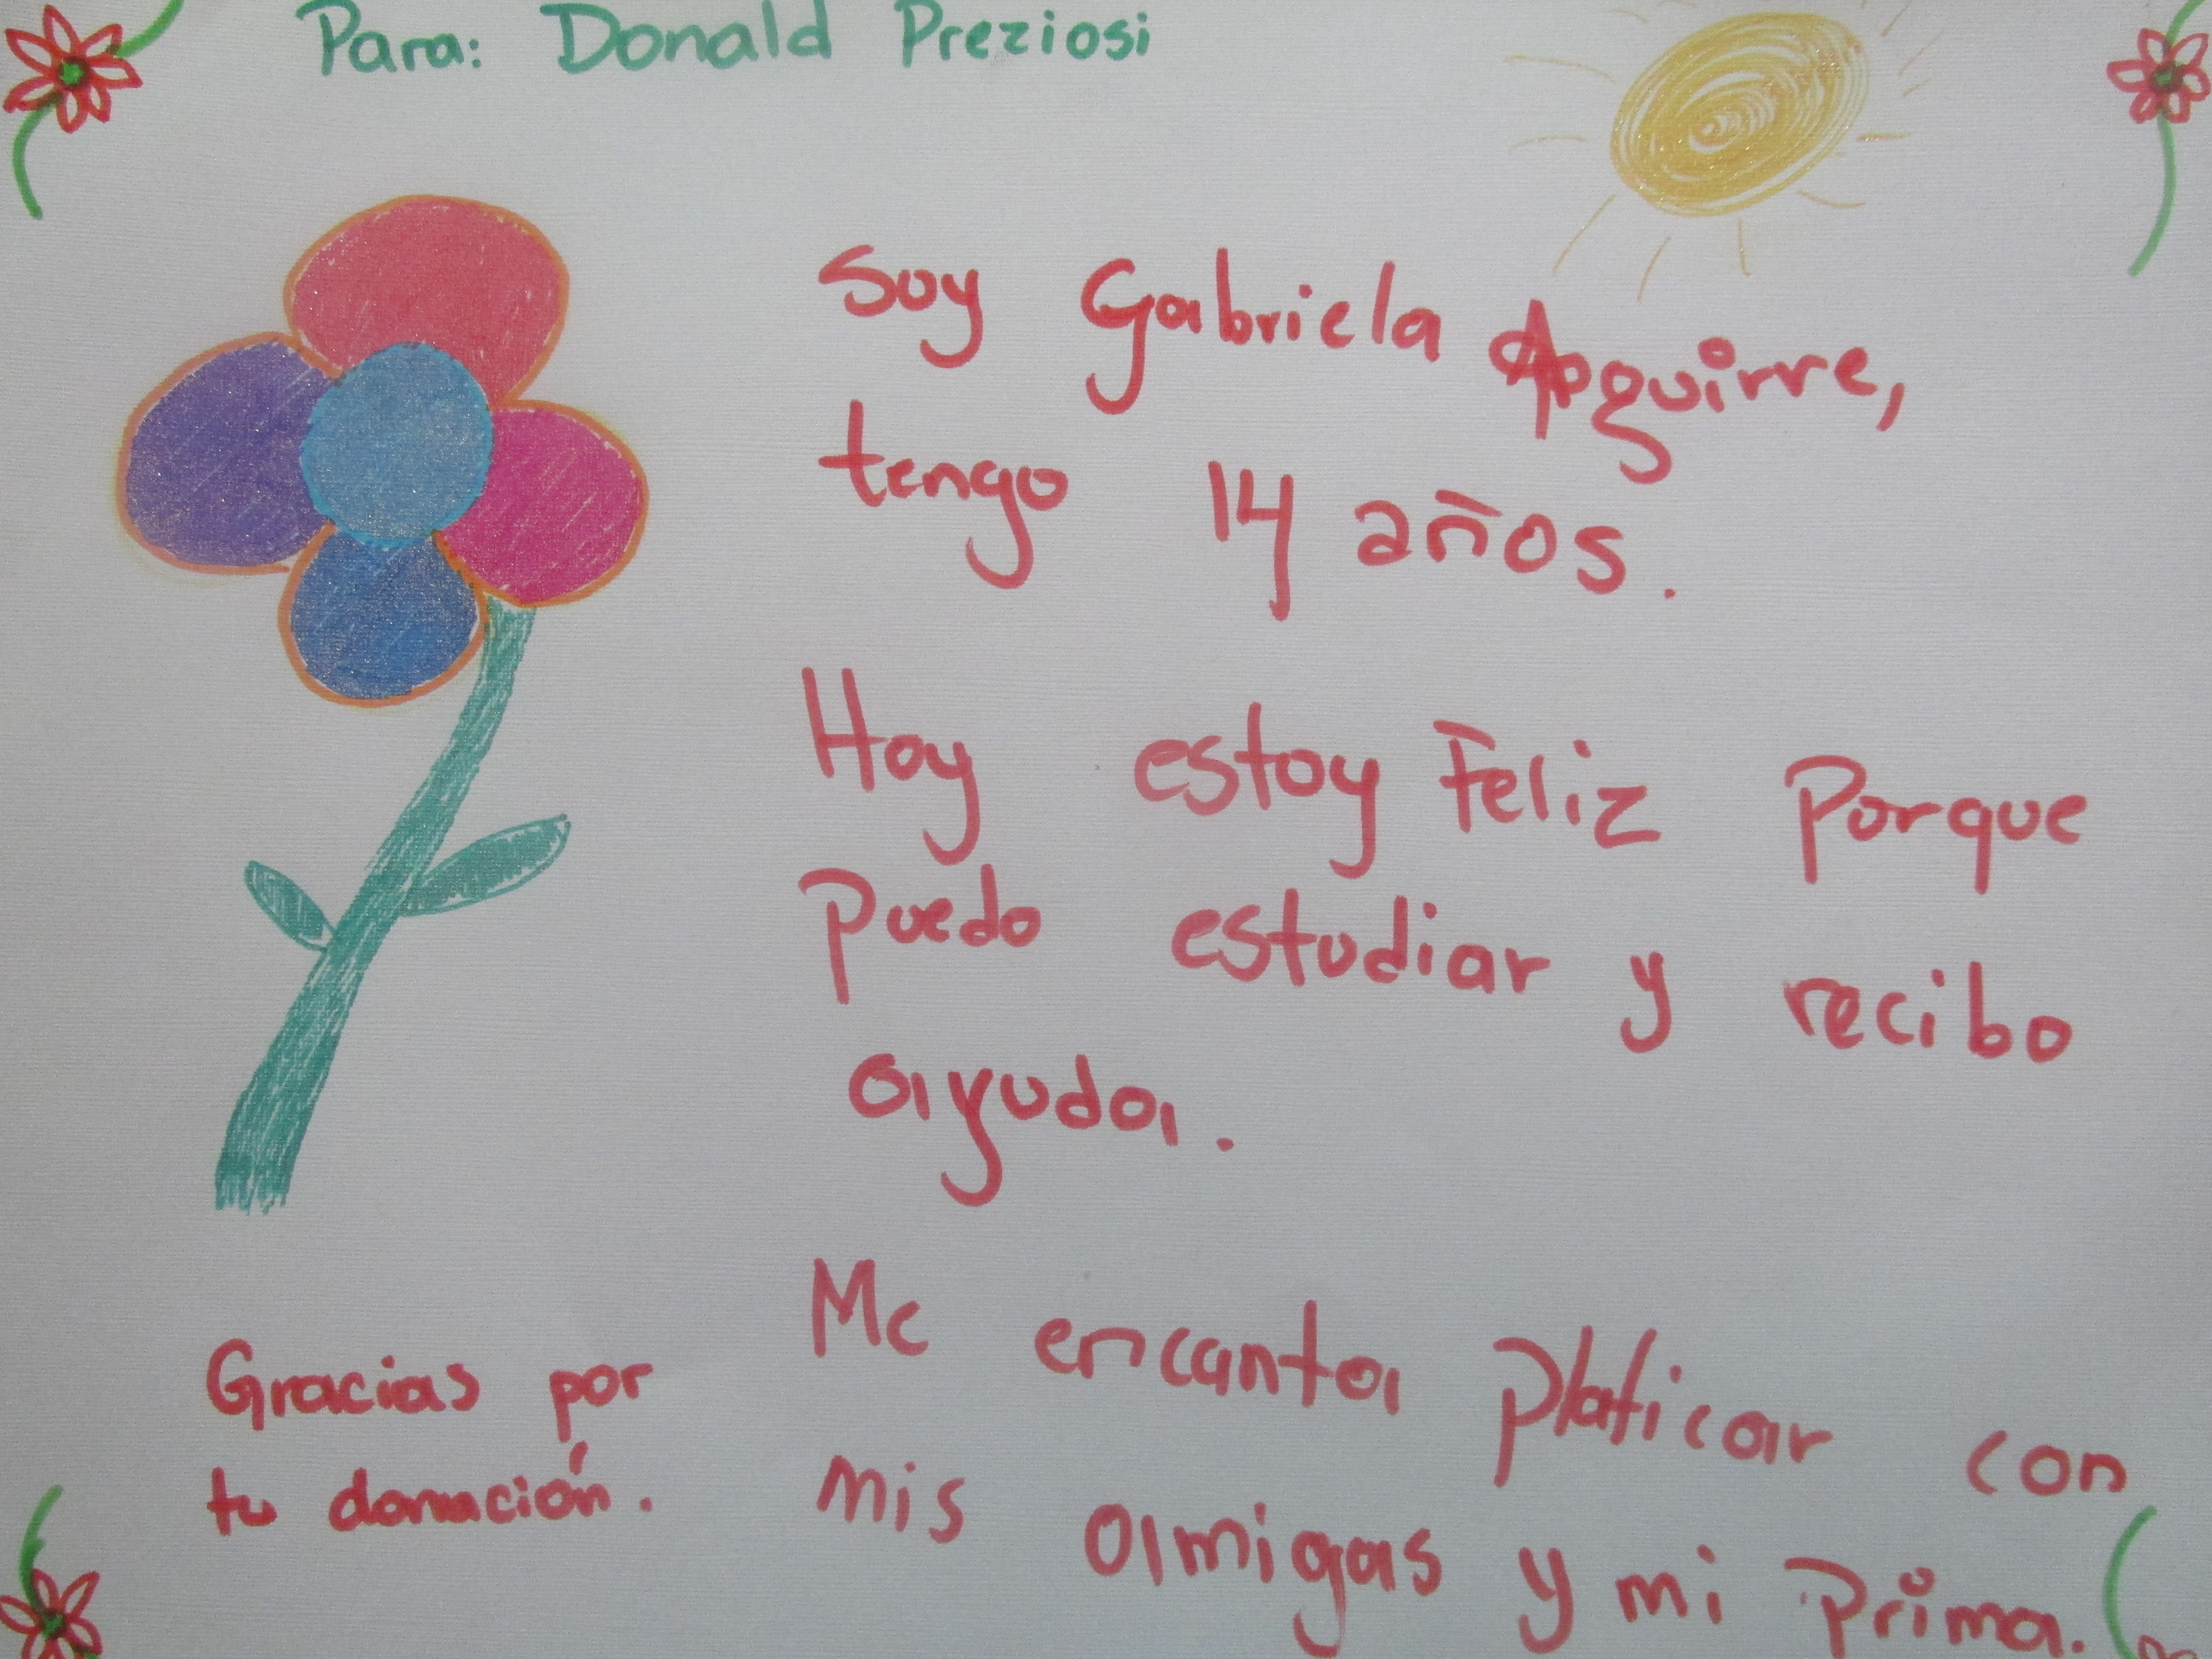 Para: Donald Preziosi
Soy Gabriela Aguirre,
tengo 14 años.
Hoy estoy Feliz Porque
Puedo estudiar y recibo
ayuda.
Me encanta Platicar con
mis amigas y mi Prima.
Gracias por
tu donación.